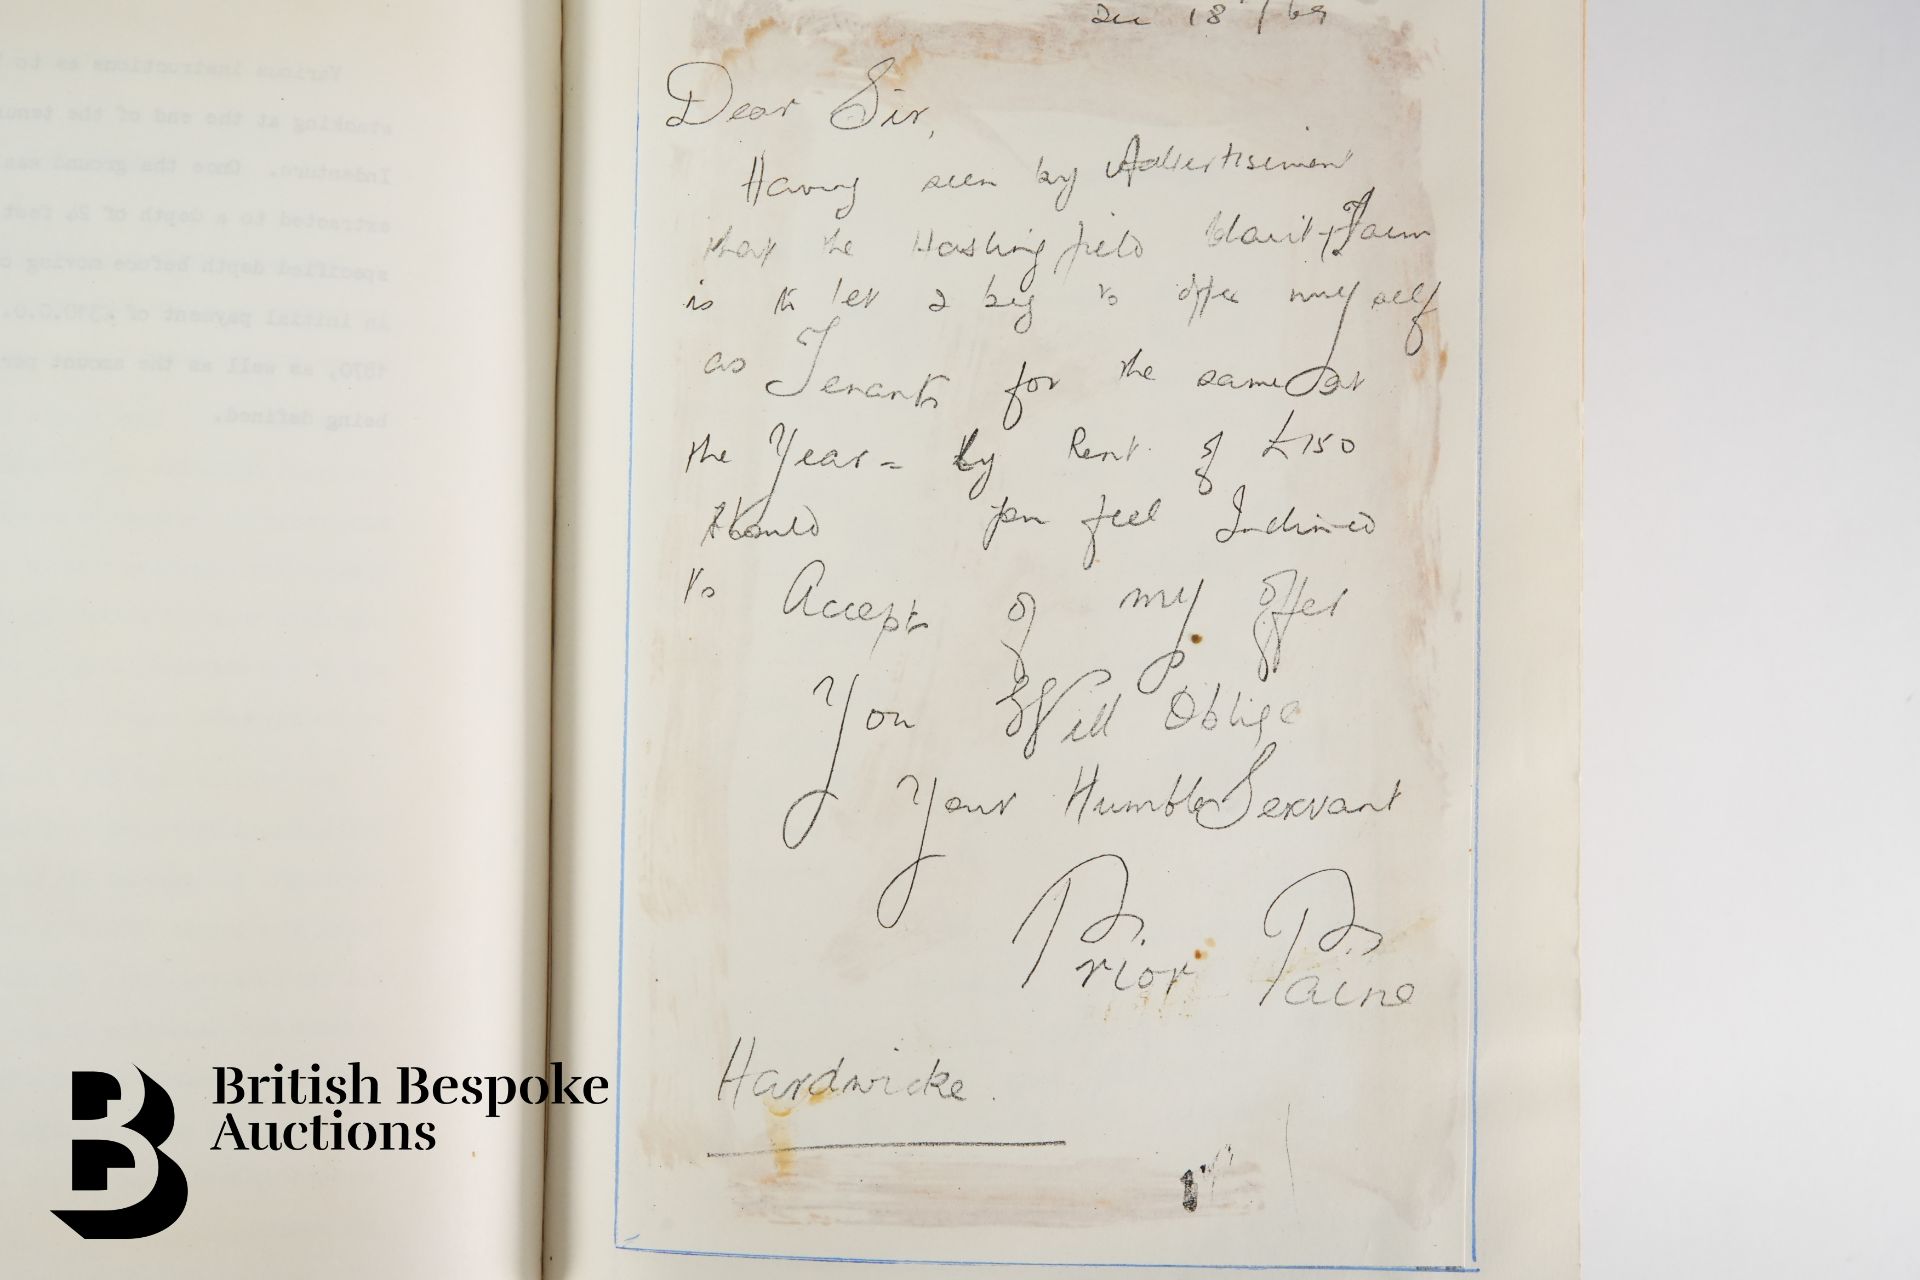 Dec 18th/69
Dear Sir,
Having seen by Advertisement
that the Haslingfield Farm
is to let I beg to offer myself
as Tenant for the same at
the Year = ly Rent of £150
Should you feel Inclined
to Accept of my offer
You Will Oblige
Your Humble Servant
Prior Paine
Hardwicke.
Various instructions as to
stacking at the end of the
Indenture. Once the ground was
extracted to a depth of 24 feet
specified depth before moving
in initial payment of £370.0.0.
1870, as well as the amount per
being defined.
British Bespoke
Auctions